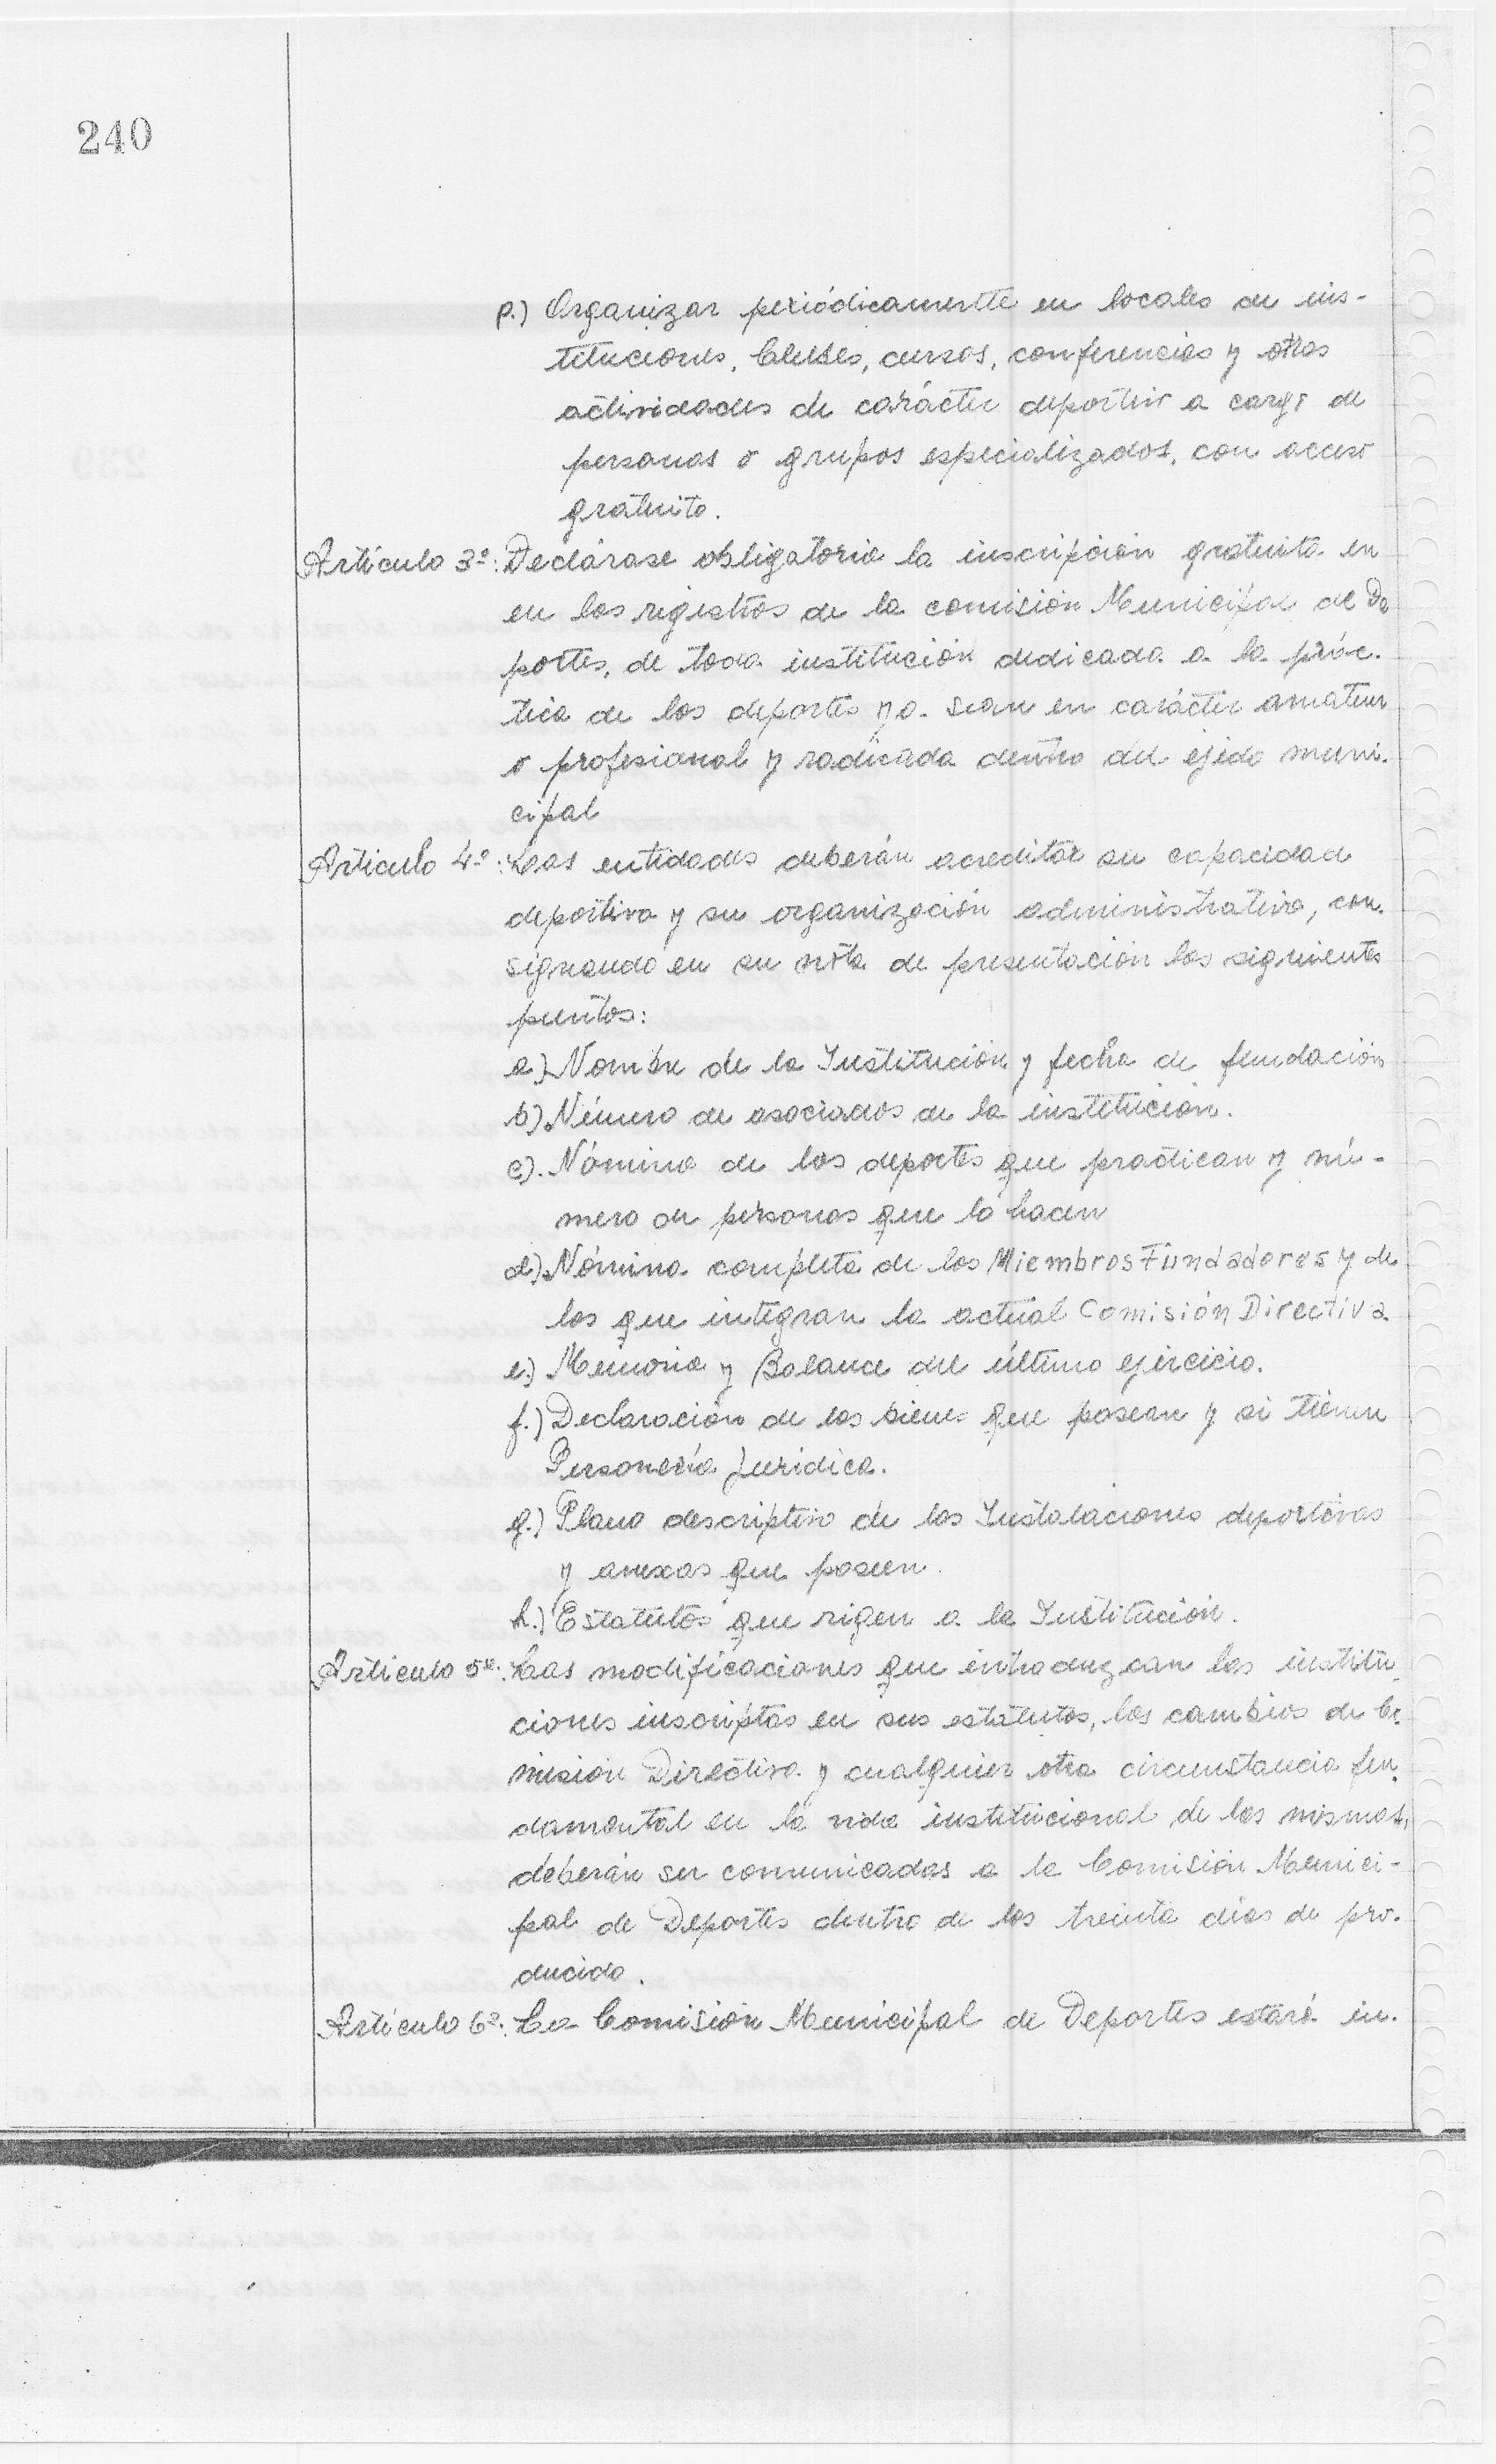 240
p.) Organizar periódicamentte en locales de ins-
tituciones, Clubes, cursos, conferencias y otras
actividades de carácter deportivo a cargo de
personas o grupos especializados, con acceso
gratuito.
Artículo 3º: Declárase obligatoria la inscripción gratuita en
en los registros de la comisión Municipal de De
portes, de toda institución dedicada a la prác-
tica de los deportes ya sean en carácter amateur
o profesional y radicada dentro del ejido muni-
cipal
Articulo 4º: Las entidades deberán acreditar su capacidad
deportiva y su organización administrativa, con-
signando en su nota de presentación los siguientes
puntos:
a) Nombre de la Institución y fecha de fundación
b) Número de asociados de la institución.
c). Nómina de los deportes que practican y nú-
mero de personas que lo hacen
d) Nómina completa de los Miembros Fundadores y de
los que integran la actual Comisión Directiva
e.) Memoria y Balance del último ejercicio.
f.) Declaración de los bienes que posean y si tienen
Personería Juridica.
g.) Plano descriptivo de las Instalaciones deportivas
y anexas que poseen.
h.) Estatutos que rigen a la Institución.
Artículo 5º: Las modificaciones que introduzcan las institu-
ciones inscriptas en sus estatutos, los cambios de Co-
misión Directiva y cualquier otra circunstancia fun-
damental en la vida institucional de las mismas,
deberán ser comunicadas a la Comisión Munici-
pal de Deportes dentro de los treinta días de pro-
ducido.
Artículo 6º: La Comisión Municipal de Deportes estará in-